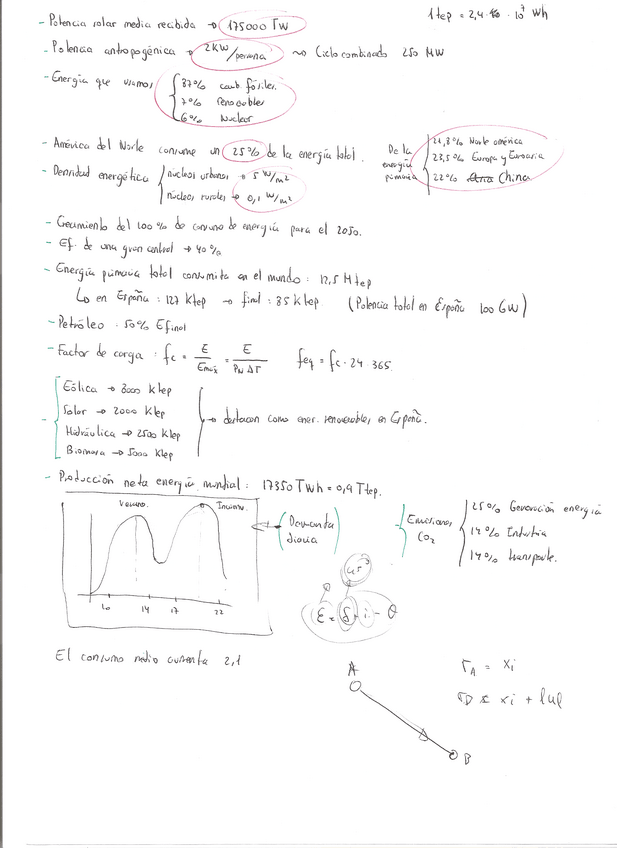 - Potencia solar media recibida → 175000 TW
1 tep = 2,4 · 10⁷ Wh
- Potencia antropogénica → 2KW/persona ~> Ciclo combinado 250 MW
- Energía que usamos { 87% comb. fósiles.
7% renovables
6% Nuclear
- América del Norte consume un 25% de la energía total.
De la energía primaria { 21,8% Norte américa
23,5% Europa y Euroasia
22% China
- Densidad energética { núcleos urbanos → 5 W/m²
núcleos rurales → 0,1 W/m²
- Crecimiento del 100% de consumo de energía para el 2050.
- Ef. de una gran central → 40%
- Energía primaria total consumita en el mundo: 12,5 Mtep
↳ en España: 127 Ktep → final: 85 Ktep (Potencia total en España 100 GW)
- Petróleo: 50% Efinal
- Factor de carga: fc = E/Emáx = E/(PN ΔT) feq = fc · 24 · 365
- { Eólica → 3000 Ktep
Solar → 2000 Ktep
Hidráulica → 2500 Ktep
Biomasa → 5000 Ktep
→ destacan como ener. renovables, en España.
- Producción neta energía mundial: 17350 TWh = 0,9 Ttep.
Verano. Invierno.
10 14 17 22
(Demanda diaria)
- { Emisiones CO₂ { 25% Generación energía
14% Industria
14% transporte.
El consumo medio aumenta 2,1
A
B
r_A = xi